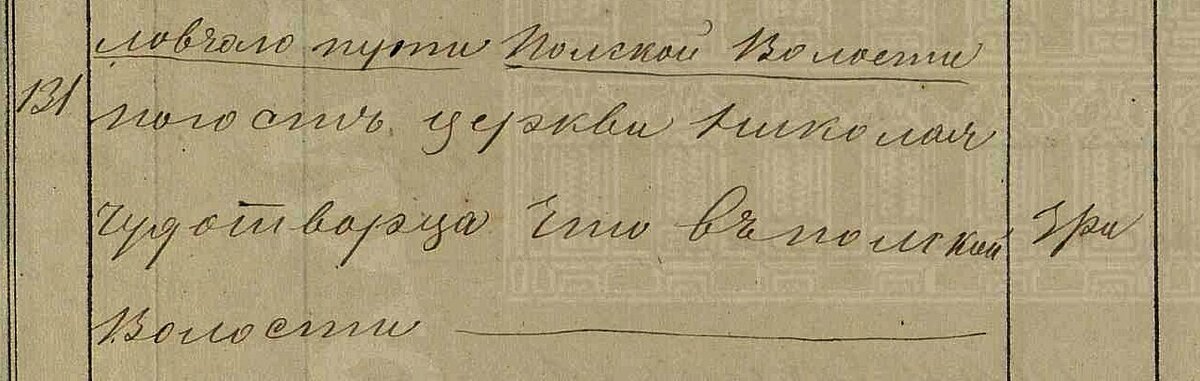 ловчаго пути Полской Волости
131 погостъ церкви Николая
чудотворца Что въ полской
Волости